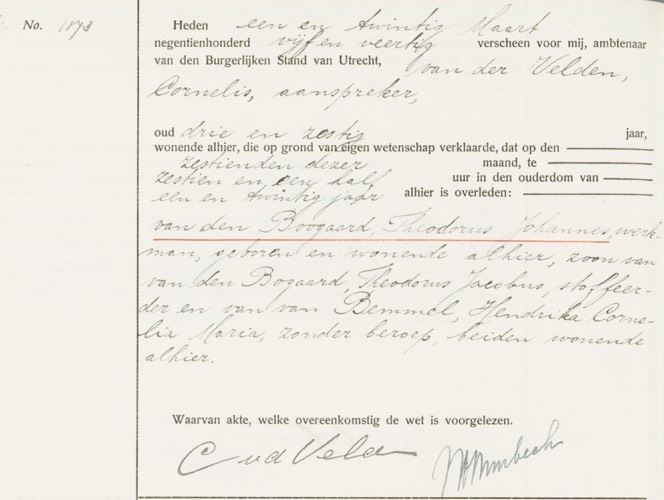 No. 1873
Heden een en twintig Maart
negentienhonderd vijf en veertig verscheen voor mij, ambtenaar
van den Burgerlijken Stand van Utrecht, van der Velden,
Cornelis, aanspreker,
oud drie en zestig jaar,
wonende alhier, die op grond van eigen wetenschap verklaarde, dat op den
zestienden dezer maand, te
zestien en een half uur in den ouderdom van
een en twintig jaar alhier is overleden:
van den Boogaard, Theodorus Johannes, werk-
man, geboren en wonende alhier, zoon van
van den Bogaard, Theodorus Jacobus, stoffeer-
der en van van Bemmel, Hendrika Corne-
lia Maria, zonder beroep, beiden wonende
alhier.
Waarvan akte, welke overeenkomstig de wet is voorgelezen.
C vd Velde